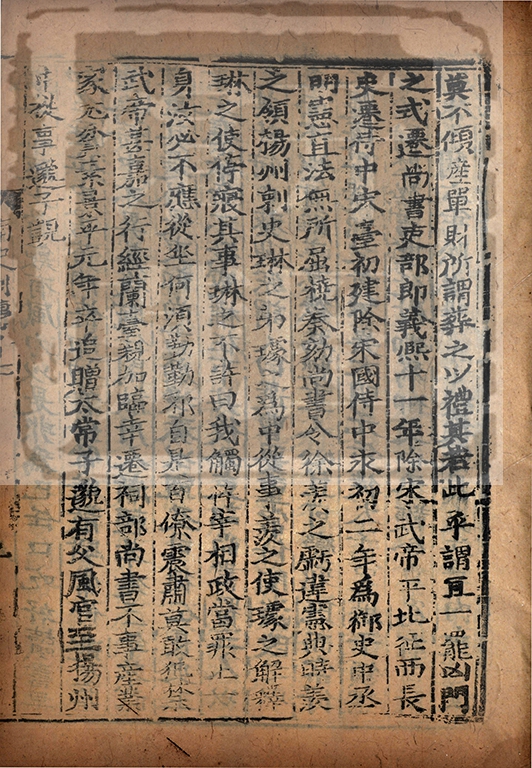 莫不傾産單財所謂葬之以禮其若此乎謂宜一罷凶門
之式遷尚書吏部郎義熙十一年除宋武帝平北征西長
史遷侍中宋臺初建除宋國侍中永初二年爲御史中丞
明憲直法無所屈撓奏劾尚書令徐羨之虧違憲典時羨
之領揚州刺史琳之弟璩之爲中從事羨之使璩之解釋
琳之使停寢其事琳之不許曰我觸忤宰相政當罪止一
身汝必不應從坐何須勤勤邪自是百僚震肅莫敢犯禁
武帝甚嘉之行經蘭臺親加臨幸遷祠部尚書不事産業
家尤貧素景平元年卒追贈太常子邈有父風官至揚州
中從事邈子覬